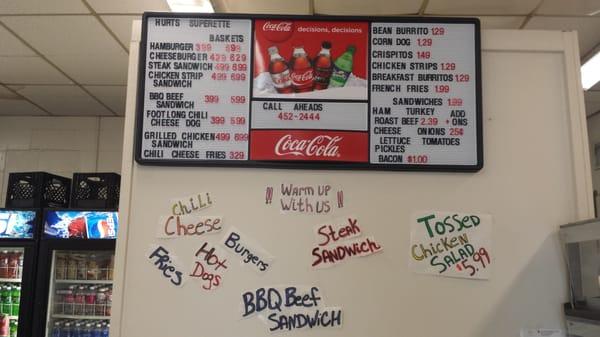 HURTS SUPERETTE
BASKETS
HAMBURGER 399 599
CHEESEBURGER 429 629
STEAK SANDWICH 499 699
CHICKEN STRIP 499 699
SANDWICH
BBQ BEEF 399 599
SANDWICH
FOOT LONG CHILI
CHEESE DOG 399 599
GRILLED CHICKEN 499 699
SANDWICH
CHILI CHEESE FRIES 329
Coca-Cola decisions, decisions..
CALL AHEADS
452-2444
Coca-Cola
BEAN BURRITO 1.29
CORN DOG 1.29
CRISPITOS 1.49
CHICKEN STRIPS 1.29
BREAKFAST BURRITOS 1.29
FRENCH FRIES 1.99
SANDWICHES 1.99
HAM TURKEY ADD
ROAST BEEF 2.39 + ONS
CHEESE ONIONS 25¢
LETTUCE TOMATOES
PICKLES
BACON $1.00
!! WARM UP !!
WITH US
Chili
Cheese
Fries
Hot
Dogs
Burgers
BBQ Beef
SANDWICH
Steak
SANDWICH
Tossed
Chicken
SALAD
$5.99
pepsi